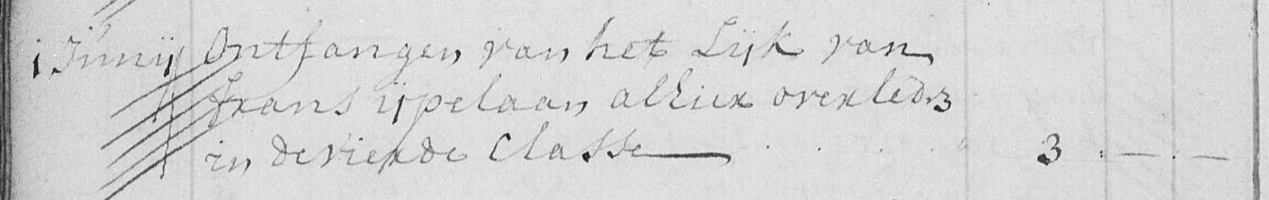 1 Junij Ontfangen van het Lijk van
frans ijpelaan alhier overleden
in de vierde Classe 3 : — . —